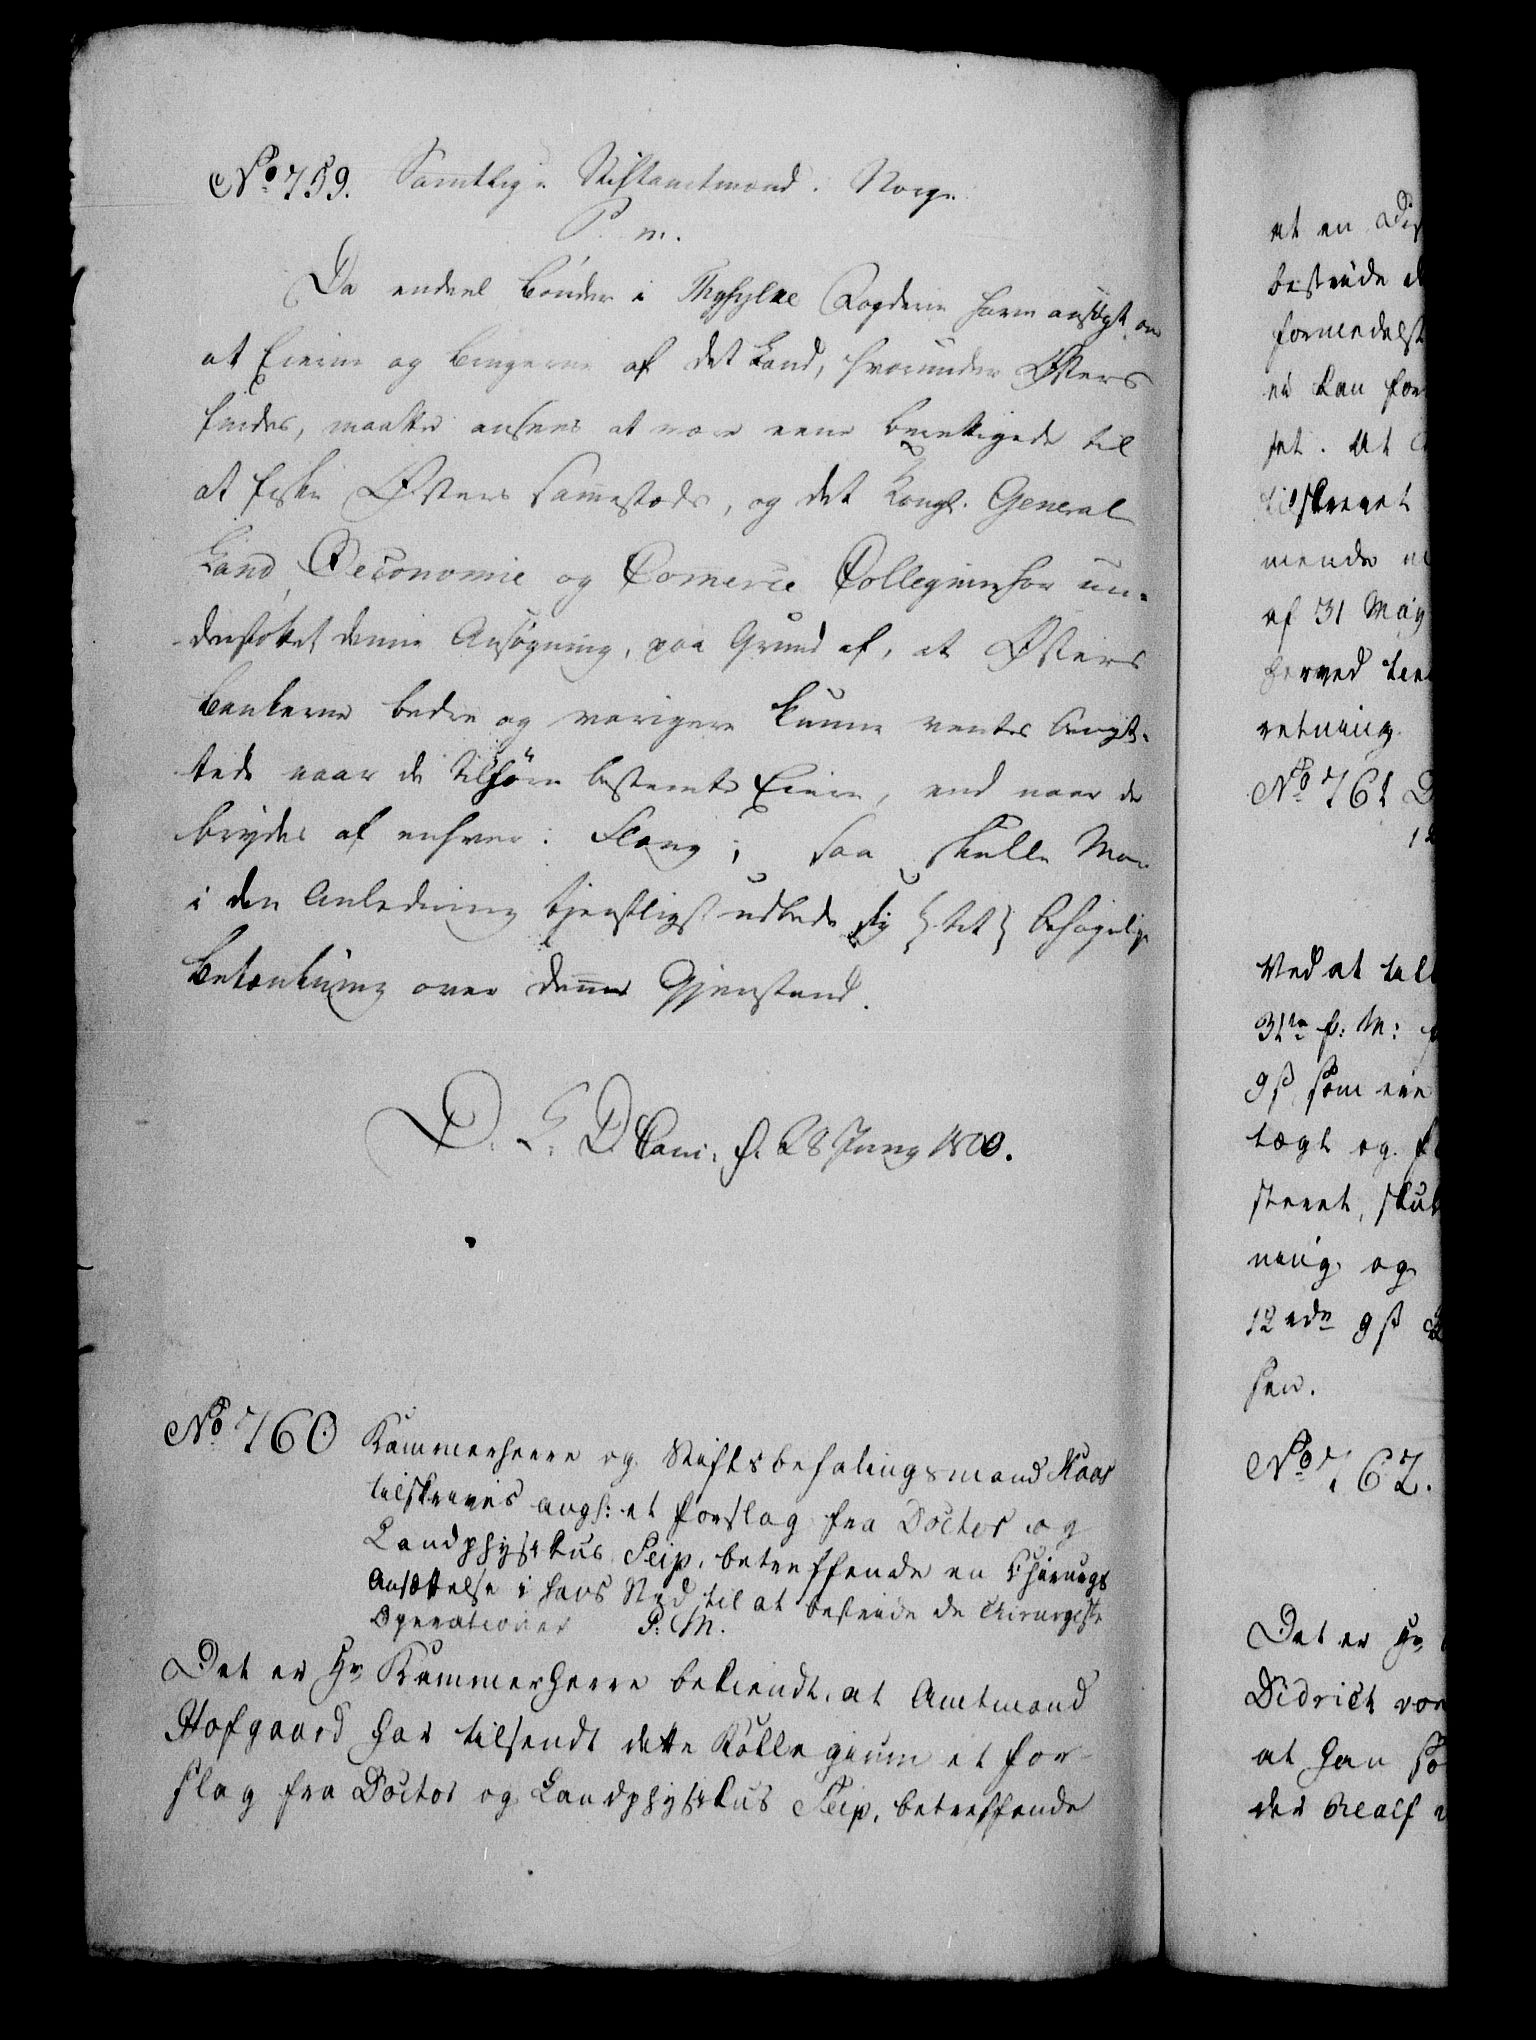 No. 759. Samtlige Stiftamtmænd i Norge
P. m.
Da endeel Bønder i Ryfylke Fogderie have ansøgt om
at Eierne og Brugerne af det Land, hvorunder Østers
findes, maatte ansees at være ene berettigede til
at fiske Østers sammesteds, og det Kongl. General
Land Oeconomie og Comerce Collegium har un-
derstøttet denne Ansøgning, paa Grund af, at Østers
Bankerne bedre og varigere kunne ventes benyt-
tede naar de tilhøre bestemte Eiere, end naar de
brydes af enhver i Flæng; saa skulle Man
i den Anledning tjenstligst udbede sig { tit } behagelige
Betænkning over denne Gjenstand.
D. C. D. Canc. d. 28 Juny 1800.
No. 760 Kammerherre og Stiftsbefalingsmand Kaas
tilskrives angh: et Forslag fra Doctor og
Landphysikus Seip, betreffende en Chirurgs
Ansættelse i hans Sted til at bestride de Chirurgiske
Operationer P: M.
Det er Hr Kammerherre bekiendt, at Amtmand
Hofgaard har tilsendt dette Kollegium et For-
slag fra Doctor og Landphysikus Seip, betreffende
at en
bestride
formedelst
ei kan for
set. At
tilskrevet
mende
af 31 May
herved
retning.
No 761 D
Ved at
31te f: M:
som
tægt og
steret,
ning og
12 ede
sen.
No 762.
Det er Hr
Didrich von
at han
der